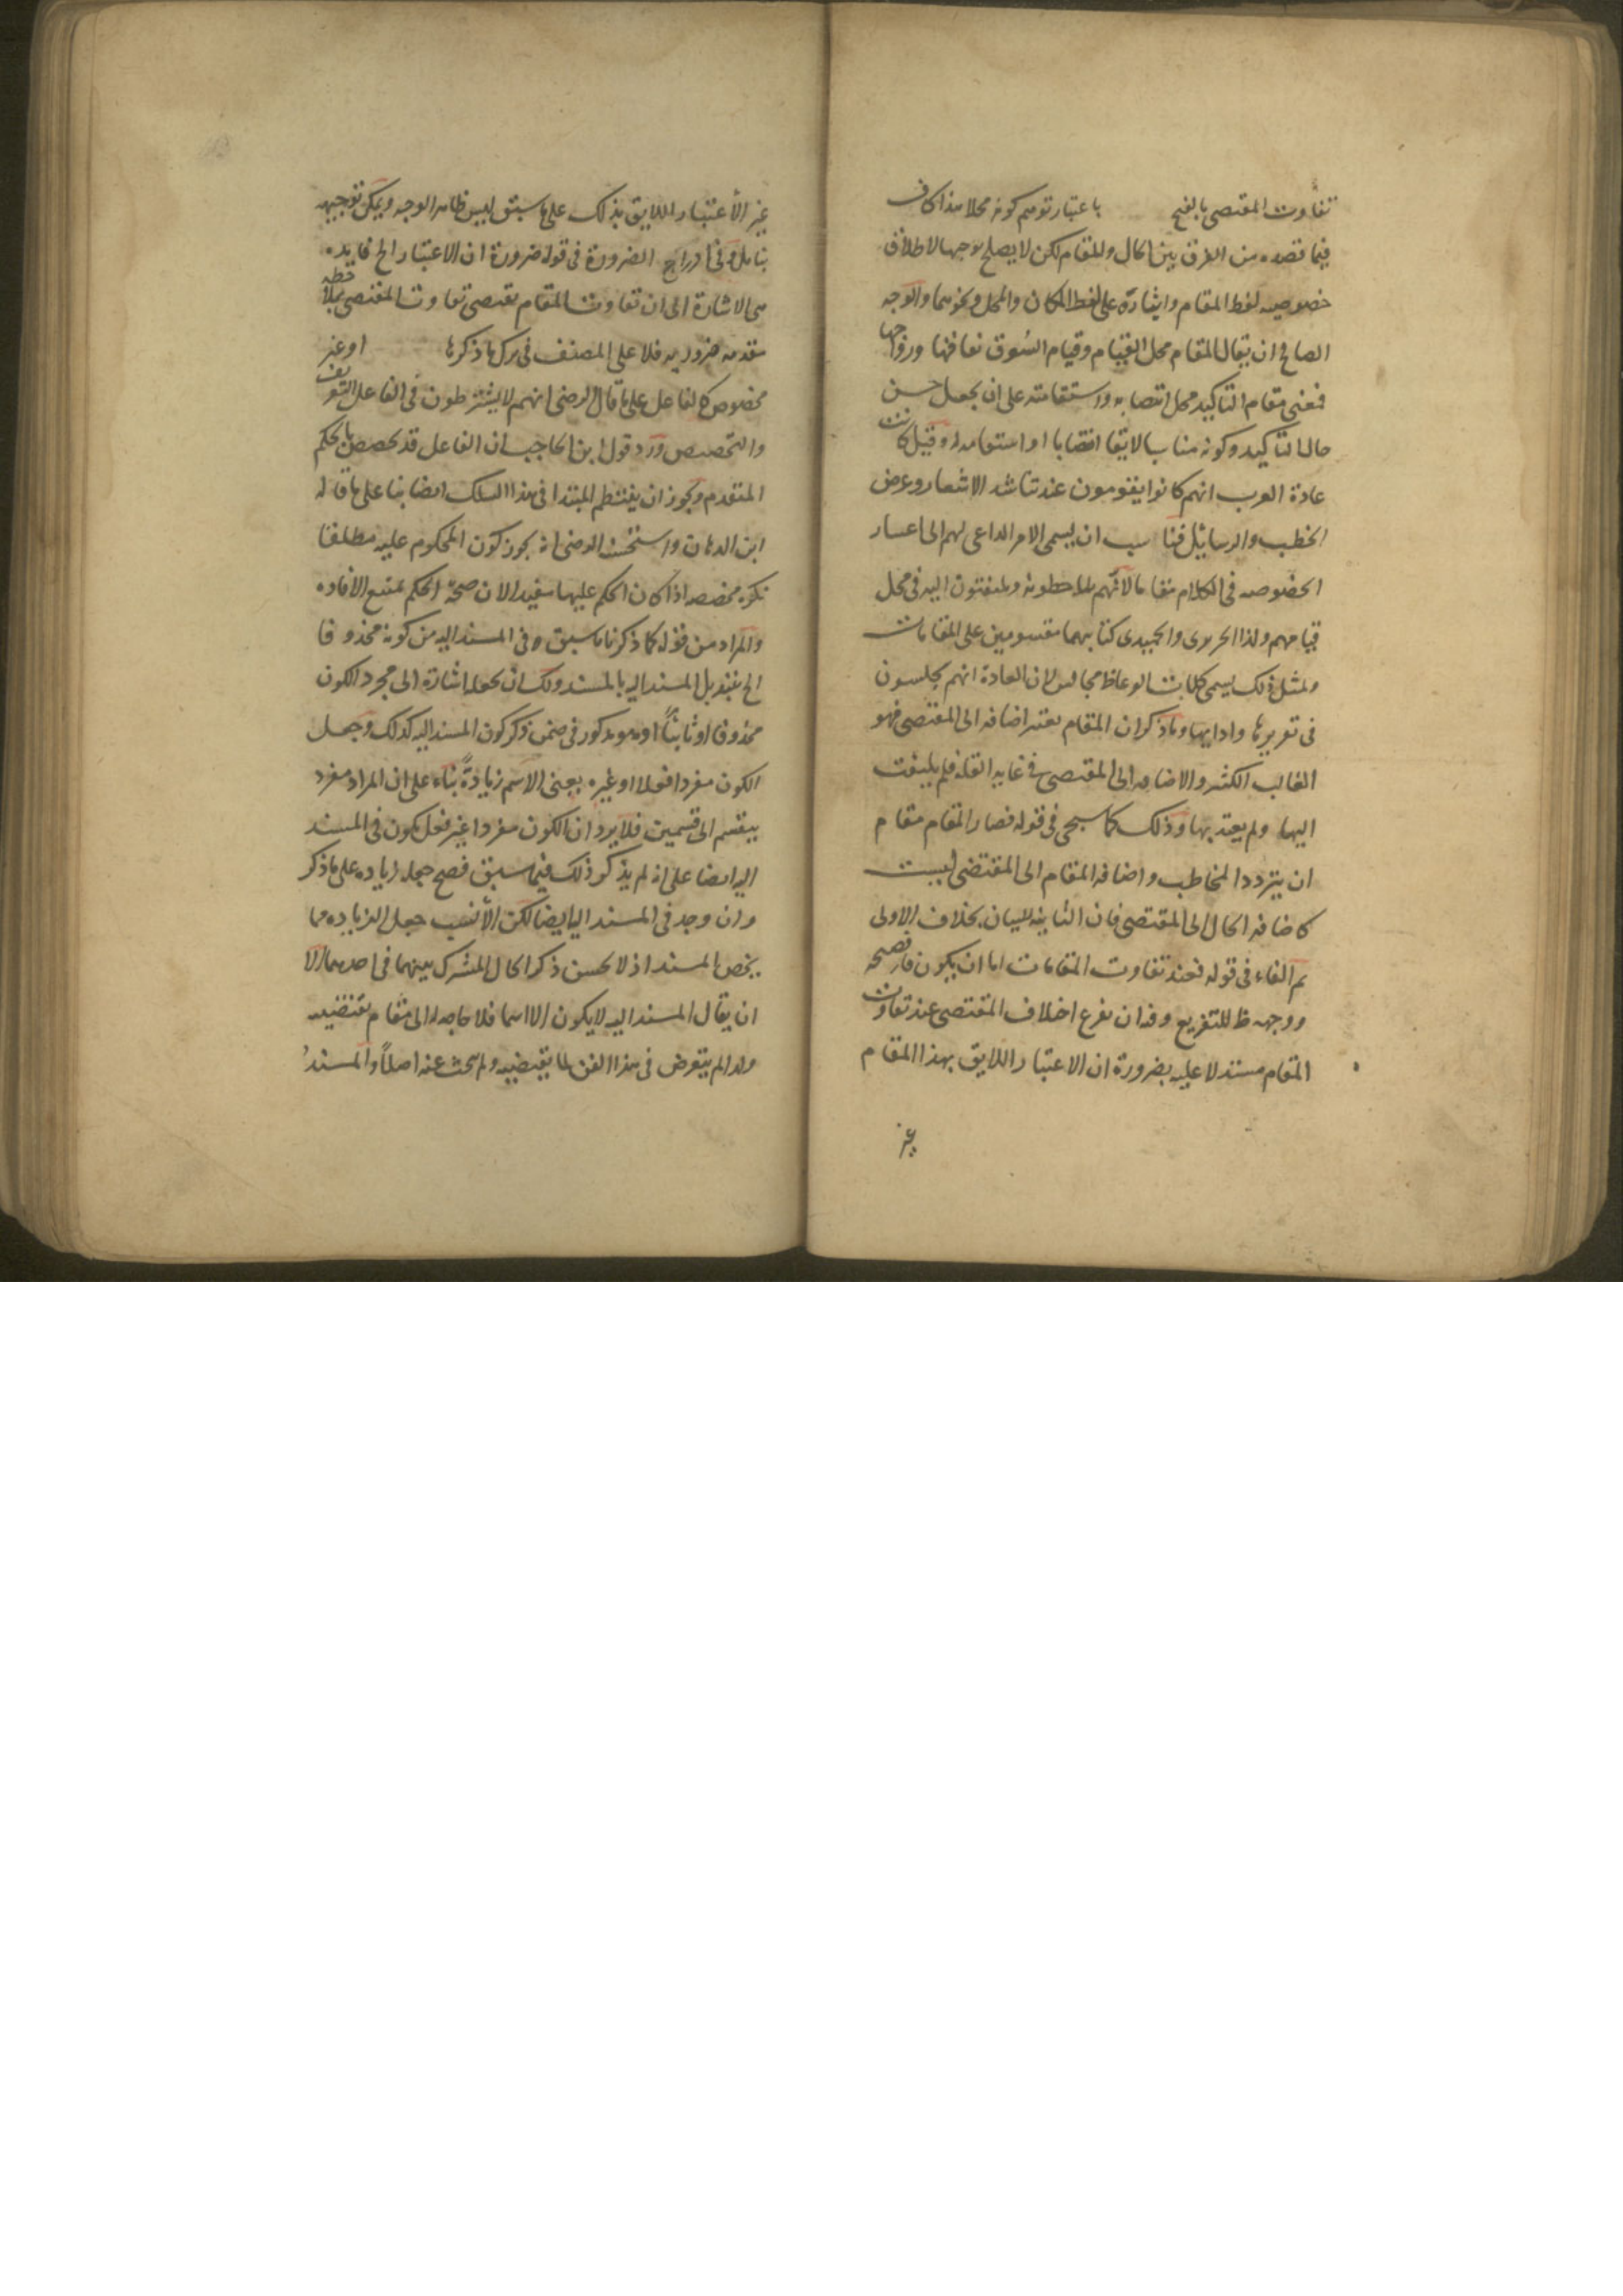 تفاوت المقتضى بالفتح باعتبار توهم كونه محلا هذا كاف
فيما قصده من الفرق بين الحال والمقام لكن لا يصلح توجيها لاطلاق
خصوصية لفظ المقام وايثاره على لفظ المكان والمحل ونحوهما والوجه
الصالح ان يقال المقام محل القيام وقيام السوق نفاقها ورواجها
فمعنى مقام التأكيد محل انتصابه واستقامته على ان يجعل حسن
حال التأكيد وكونه مناسبا لايقا انتصابا او استقامة له وقيل كانت
عادة العرب انهم كانوا يقومون عند تناشد الاشعار وعرض
الخطب والرسائل فناسب ان يسمى الامر الداعى لهم الى اعتبار
الخصوصه فى الكلام مقاما لانهم يلاحظونه ويلتفتون اليه فى محل
قيامهم ولذا الحريرى والحميدى كتابيهما مقسومين على المقامات
ولمثل ذلك يسمى كلمات الوعاظ مجالس لان العادة انهم يجلسون
فى تقريرها وادايها وما ذكر ان المقام يعتبر اضافه الى المقتضى فهو
الغالب الكثير والاضافه الى المقتضى فى غايه القله فلم يلتفت
اليها ولم يعتد بها وذلك كما سيجى فى قوله فصار المقام مقام
ان يتردد المخاطب واضافه المقام الى المقتضى ليست
كاضافه الحال الى المقتضى فان الثانيه للبيان بخلاف الاولى
ثم الفاء فى قوله فعند تفاوت المقامات اما ان يكون فاء فصيحه
ووجهه ظ للتفريع وفدان يفرع اختلاف المقتضى عند تفاوت
المقام مستدلا عليه بضرورة ان الاعتبار اللايق بهذا المقام
غير
غير الاعتبار اللايق بذلك على ما سبق ليس ظاهر الوجه ويمكن توجيهه
بتامل وفى ادراج الضرورة فى قوله ضرورة ان الاعتبار الخ فايده
هى الاشارة الى ان تفاوت المقام يقتضى تفاوت المقتضى بملاحظه
مقدمه ضروريه فلا على المصنف فى ترك ما ذكرها او غير
مخصوص كالفاعل على ما قال الرضى انهم لا يشترطون فى الفاعل التعريف
والتخصيص ورد قول ابن الحاجب ان الفاعل قد تخصص بالحكم
المتقدم ويجوز ان ينتظم المبتدا فى هذا السلك ايضا بنا على ما قاله
ابن الدهان واستحسنه الرضى انه يجوز كون المحكوم عليه مطلقا
نكره مخصصه اذا كان الحكم عليها مفيدا لان صحة الحكم تتبع الافاده
والمراد من قوله كما ذكرنا ما سبق ه فى المسند اليه من كونه محذوفا
الخ بتبديل المسند اليه بالمسند ولك ان تجعله اشارة الى مجرد الكون
محذوفا او ثابتا اذ هو مذكور فى ضمن ذكر كون المسند اليه كذلك وجعل
الكون مفردا فعلا او غيره بمعنى الاسم زيادة بناء على ان المراد مفرد
ينقسم الى قسمين فلا يرد ان الكون مفردا غير فعل يكون فى المسند
اليه ايضا على انه لم يذكر ذلك فيما سبق فصح جعله زياده على ما ذكر
وان وجد فى المسند اليه ايضا لكن الأنسب جعل الزياده مما
يخص المسند اذ لا يحسن ذكر الحال المشترك بينهما فى احدهما الا
ان يقال المسند اليه لا يكون الا اسما فلا حاجه له الى مقام يقتضيه
ولذا لم يتعرض فى هذا الفن لما يقتضيه ولم يبحث عنه اصلا والمسند